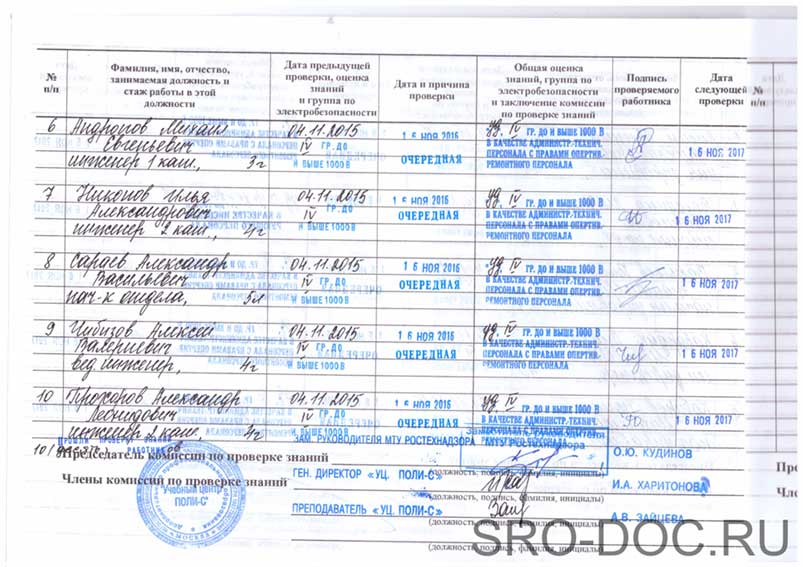 №
п/п
Фамилия, имя, отчество,
занимаемая должность и
стаж работы в этой
должности
Дата предыдущей
проверки, оценка
знаний
и группа по
электробезопасности
Дата и причина
проверки
Общая оценка
знаний, группа по
электробезопасности
и заключение комиссии
по проверке знаний
Подпись
проверяемого
работника
Дата
следующей
проверки
№
п/п
6 Андропов Михаил 04.11.2015 16 НОЯ 2016 уд. IV ГР. ДО И ВЫШЕ 1000 В
Евгеньевич IV ГР. ДО В КАЧЕСТВЕ АДМИНИСТР.-ТЕХНИЧ. 16 НОЯ 2017
инженер 1 кат., 3г И ВЫШЕ 1000 В ОЧЕРЕДНАЯ ПЕРСОНАЛА С ПРАВАМИ ОПЕРТИВ-
РЕМОНТНОГО ПЕРСОНАЛА
7 Никонов Илья 04.11.2015 16 НОЯ 2016 уд. IV ГР. ДО И ВЫШЕ 1000 В
Александрович IV ГР. ДО ОЧЕРЕДНАЯ В КАЧЕСТВЕ АДМИНИСТР.-ТЕХНИЧ. 16 НОЯ 2017
инженер 2 кат., 4г И ВЫШЕ 1000 В ПЕРСОНАЛА С ПРАВАМИ ОПЕРТИВ-
РЕМОНТНОГО ПЕРСОНАЛА
8 Сараев Александр 04.11.2015 16 НОЯ 2016 уд. IV ГР. ДО И ВЫШЕ 1000 В
Васильевич IV ГР. ДО ОЧЕРЕДНАЯ В КАЧЕСТВЕ АДМИНИСТР.-ТЕХНИЧ. 16 НОЯ 2017
нач-к отдела, 5л И ВЫШЕ 1000 В ПЕРСОНАЛА С ПРАВАМИ ОПЕРТИВ-
РЕМОНТНОГО ПЕРСОНАЛА
9 Чибизов Алексей 04.11.2015 16 НОЯ 2016 уд. IV ГР. ДО И ВЫШЕ 1000 В
Валериевич IV ГР. ДО ОЧЕРЕДНАЯ В КАЧЕСТВЕ АДМИНИСТР.-ТЕХНИЧ. 16 НОЯ 2017
вед. инженер, 4г И ВЫШЕ 1000 В ПЕРСОНАЛА С ПРАВАМИ ОПЕРТИВ-
РЕМОНТНОГО ПЕРСОНАЛА
10 Прохоров Александр 04.11.2015 16 НОЯ 2016 уд. IV ГР. ДО И ВЫШЕ 1000 В
Леонидович IV ГР. ДО ОЧЕРЕДНАЯ В КАЧЕСТВЕ АДМИНИСТР.-ТЕХНИЧ. 16 НОЯ 2017
инженер 2 кат., 4г И ВЫШЕ 1000 В ПЕРСОНАЛА С ПРАВАМИ ОПЕРТИВ-
ПРОШЛИ ПРОВЕРКУ ЗНАНИЙ
ЗАМ. РУКОВОДИТЕЛЯ МТУ РОСТЕХНАДЗОРА МТУ Ростехнадзора
Председатель комиссии по проверке знаний О.Ю. КУДИНОВ
(должность, подпись, фамилия, инициалы)
Члены комиссии по проверке знаний ГЕН. ДИРЕКТОР «УЦ. ПОЛИ-С» И.А. ХАРИТОНОВА
(должность, подпись, фамилия, инициалы)
Учебный центр
ПОЛИ-С
МОСКВА
ПРЕПОДАВАТЕЛЬ «УЦ. ПОЛИ-С» А.В. ЗАЙЦЕВА
(должность, подпись, фамилия, инициалы)
(должность, подпись, фамилия, инициалы)
SRO-DOC.RU